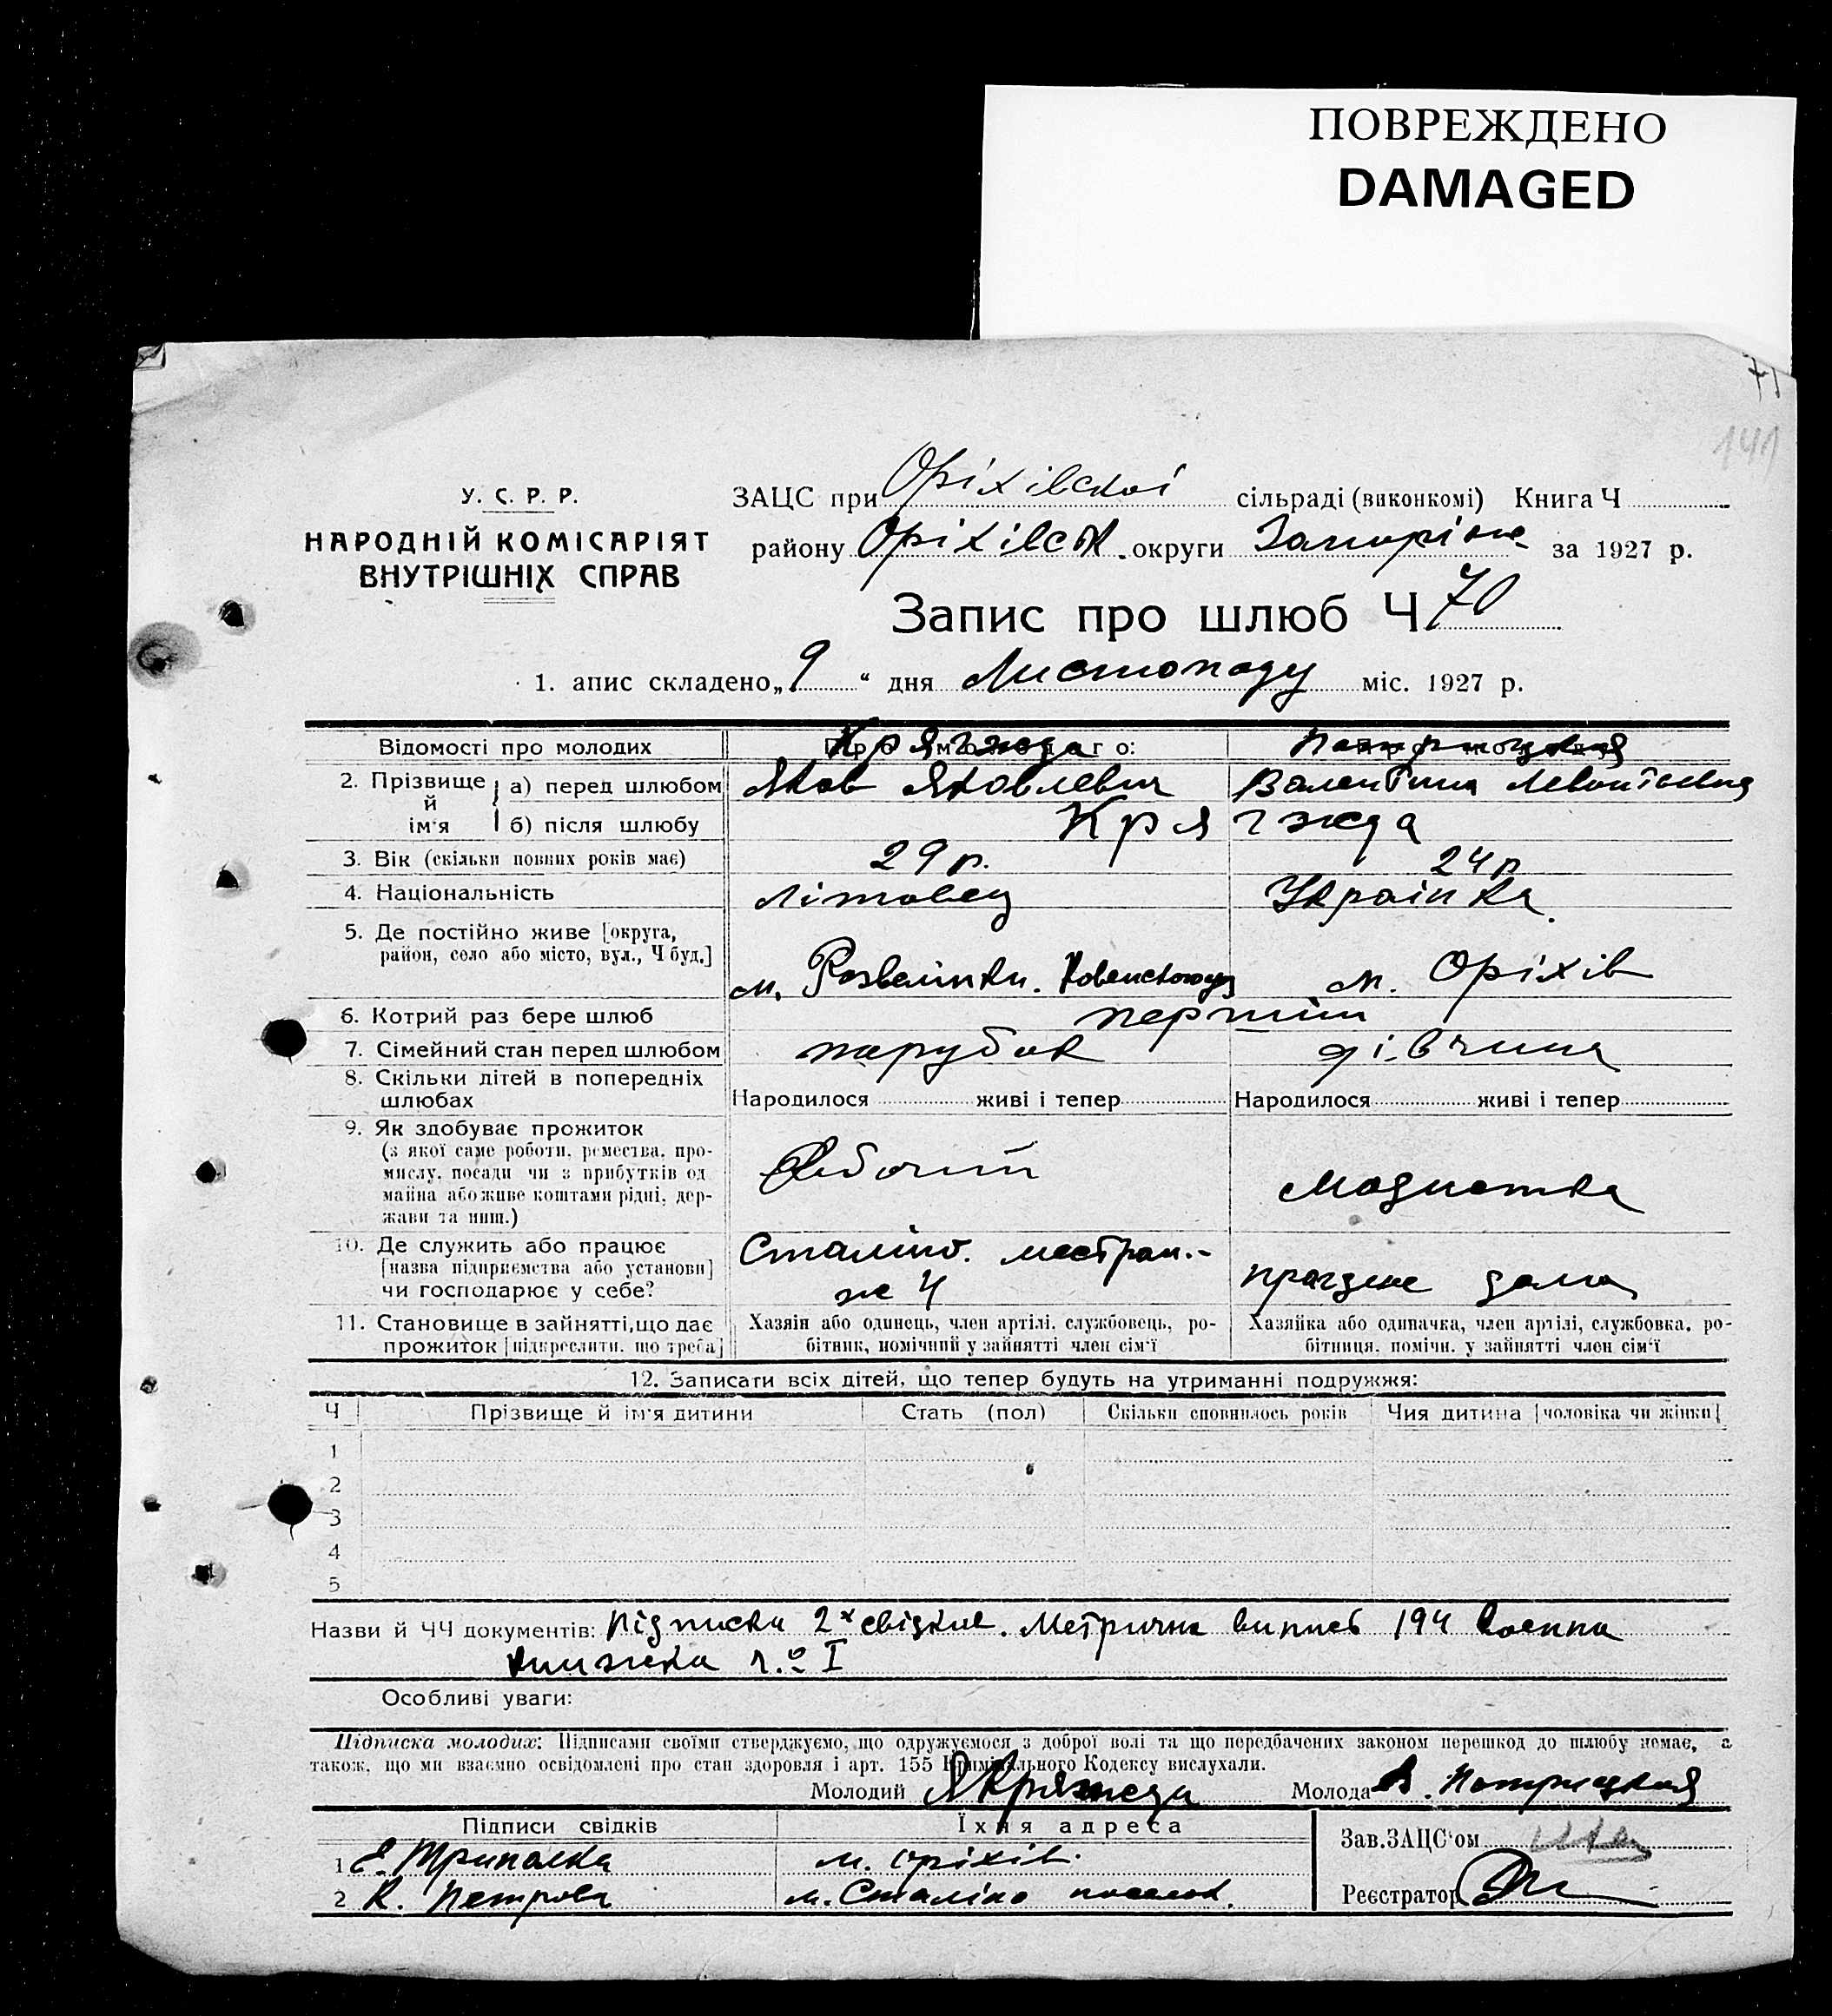 ПОВРЕЖДЕНО
DAMAGED
71
141
У. С. Р. Р.
НАРОДНІЙ КОМІСАРІЯТ
ВНУТРІШНІХ СПРАВ
ЗАЦС при Оріхівській сільраді (виконкомі) Книга Ч
району Оріхівськ. округи за 1927 р.
Запис про шлюб Ч 70
1. апис складено „9“ дня Листопаду міс. 1927 р.
Відомості про молодих
2. Прізвище й ім'я
а) перед шлюбом Яков Яковлевич Валентина
б) після шлюбу Крягжда
3. Вік (скільки повних років має) 29 р. 24 р
4. Національність Літовец Українка.
5. Де постійно живе [округа,
район, село або місто, вул., Ч буд.]
м. м. Оріхів
6. Котрий раз бере шлюб перший
7. Сімейний стан перед шлюбом парубок дівчина
8. Скільки дітей в попередніх
шлюбах Народилося живі і тепер Народилося живі і тепер
9. Як здобуває прожиток
(з якої саме роботи, ремества, про-
мислу, посади чи з прибутків од
майна або живе коштами рідні, дер-
жави та инш.)
Робочий Модистка
10. Де служить або працює
[назва підприємства або установи]
чи господарює у себе?
Сталіно. дома
11. Становище в зайнятті, що дає
прожиток [підкреслити, що треба]
Хазяін або одинець, член артілі, службовець, ро-
бітник, помічний у зайнятті член сім'ї
Хазяйка або одиначка, член артілі, службовка, ро-
бітниця, помічн. у зайнятті член сім'ї
12. Записати всіх дітей, що тепер будуть на утриманні подружжя:
Ч Прізвище й ім'я дитини Стать (пол) Скільки сповнилось років Чия дитина [чоловіка чи жінки]
1
2
3
4
5
Назви й ЧЧ документів: Підписки 2х свідків. Метрична випись 194 Воєнна
книжка I
Особливі уваги:
Підписка молодих: Підписами своїми стверджуємо, що одружуємося з доброї волі та що передбачених законом перешкод до шлюбу немає, а
також, що ми взаємно освідомлені про стан здоровля і арт. 155 Крімінального Кодексу вислухали.
Молодий ЯКряжеда Молода В. Патрицкая
Підписи свідків Їхня адреса
1 Е. Триполка м. Оріхів.
2 К. Петрова м. Сталіно поселок.
Зав. ЗАЦС'ом
Реєстратор